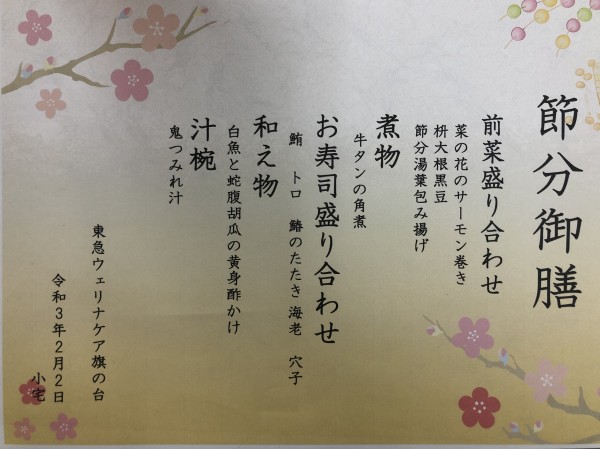 節分御膳
前菜盛り合わせ
菜の花のサーモン巻き
枡大根黒豆
節分湯葉包み揚げ
煮物
牛タンの角煮
お寿司盛り合わせ
鮪 トロ 鰺のたたき 海老 穴子
和え物
白魚と蛇腹胡瓜の黄身酢かけ
汁椀
鬼つみれ汁
東急ウェリナケア旗の台
令和3年2月2日
小宅